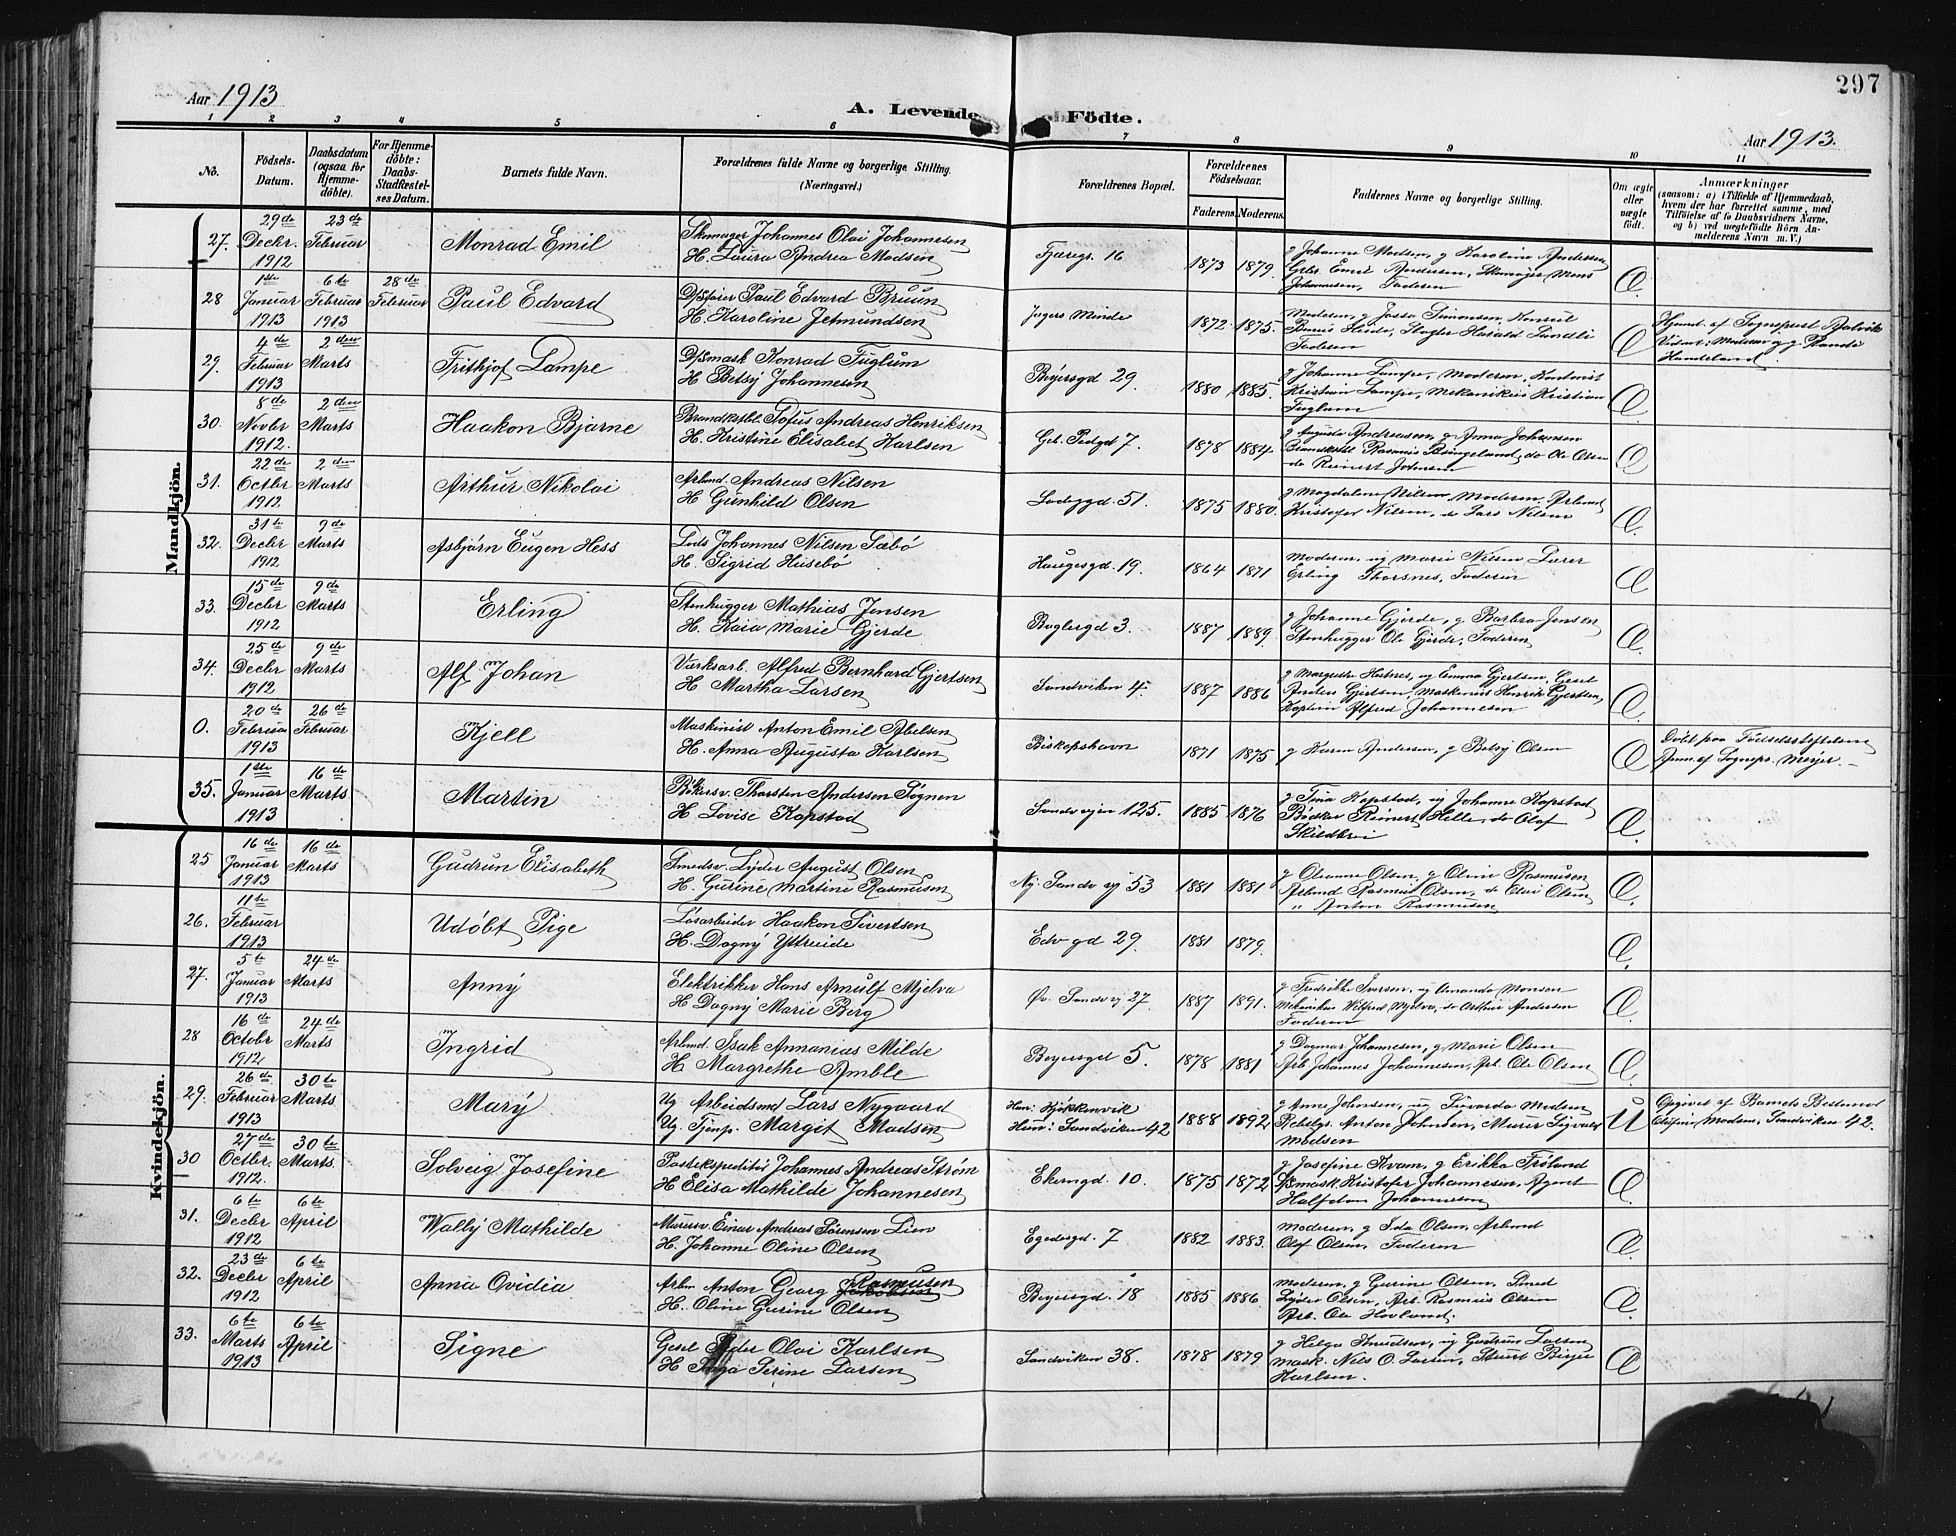 297
Aar 1913
A. Levende Födte.
Aar 1913.
1 2 3 4 5 6 7 8 9 10 11
No.
Födsels-
Datum.
Daabsdatum
(ogsaa for
Hjemme-
döbte).
For Hjemme-
döbte:
Daabs-
Stadfæstel-
ses Datum.
Barnets fulde Navn.
Forældrenes fulde Navne og borgerlige Stilling.
(Næringsvei.)
Forældrenes Bopæl.
Forældrenes
Födselsaar.
Faderens. Moderens.
Faddernes Navne og borgerlige Stilling.
Om ægte
eller
uægte
födt.
Anmærkninger
(saasom: a) i Tilfælde af Hjemmedaab,
hvem der har forrettet samme, med
Tilföielse af to Daabsvidners Navne,
og b) ved uægtefödte Börn An-
melderens Navn m. V.)
Mandkjön.
27. 29de Decbr. 1912 23de Februar
Monrad Emil
Skomager Johannes Olai Johannesen
H. Laura Andrea Madsen
Fjæregr. 16 1873 1879
g Johanne Madsen, g Karoline Andersen
Gbr. Emil Andersen, Skomager Mons
Johannesen, Faderen
Æ.
28 1ste Januar 1913 6te Februar 1913 28de Februar
Paul Edvard
Dsfører Paul Edvard Bruun
H. Karoline Jetmundsen
Jægers Minde 1872 1875
Moderen, g Jossa Simonsen, Konsul
Faderen
Æ
Hjemd. af Sognepræst
Vidner: Moderen og g. Randi
Handeland
29. 4de Februar 1913 2den Marts
Frithjof Lampe
Dsmask Konrad Fuglum
H Betsy Johannesen
Beyersgd 29. 1880 1885
g Johanne Lampe, Moderen, Kontorist
Kristian Lampe, Mekanikus Kristian
Fuglum
Æ
30. 8de Novbr 1912. 2den Marts
Haakon Bjarne
Brandkstbl. Tofus Andreas Henriksen
H. Kristine Elisabet Karlsen
7. 1878 1884
g Augusta Andreasen, g Anna Johansen
Brandkstbl Rasmus Bringeland, do Ole Olsen
do Reinert Johnsen
Æ
31. 22de Octbr 1912. 2den Marts
Arthur Nikolai
Arbmd. Andreas Nilsen
H Gunhild Olsen
Ladeggd 51. 1875 1880
g Magdalene Nilsen Moderen, Arbmd
Kristofer Nilsen, do Lars Nilsen
Æ.
32. 31te Decbr 1912 9de Marts
Asbjørn Eugen Hess
Lods Johannes Nilsen Sæbø
H. Sigrid Husebø
Haugesgd. 19. 1864 1871
Moderen, ug Marie Nilsen Lærer
Erling Thorsnes, Faderen
Æ
33. 15de Decbr 1912 9de Marts
Erling
Stenhugger Mathias Jensen
H. Kaia Marie Gjerde
Baglergd 3. 1887 1889
g Johanne Gjerde, g Barbra Jensen
Stenhugger Ole Gjerde, Faderen
Æ.
34. 25de Decbr 1912 9de Marts
Alf Johan
Værksarb. Alfred Bernhard Gjertsen
H Martha Larsen
Sandviken 4. 1887 1886
g Margrethe Hisdnes, ug Emma Gjertsen, Gesel
Anders Gjertsen, Maskinist Henrik Gjertsen,
Kaptein Alfred Johannesen
Æ.
0. 20de Februar 1913 26de Februar
Kjell
Maskinist Anton Emil Abelsen
H. Anna Augusta Karlsen
Biskopshavn 1871 1875
g Karen Andersen, g Betsy Olsen
Æ
Døbt paa Fødselsstiftelsen
Anm. af Sognepr. Meyer. —
35. 1ste Januar 1913 16de Marts
Martin
Bøkersv. Thorsten Andersen Søgnen
H Lovise Kopstad
Sandvejen 125. 1885 1876
g Tina Kopstad, ug Johanne Kopstad
Bødker Reinert Helle, do Olaf
Skildbrei
Æ.
Kvindekjön.
25 16de Januar 1913 16de Marts
Gudrun Elisabeth
Smedsv. Lyder August Olsen
H. Gurine Martine Rasmusen
Ny. Sandvej 53 1881 1881
g Olianne Olsen, g Oline Rasmusen
Arbmd Rasmus Olsen, do Elai Olsen
" Anton Rasmusen
Æ.
26. 11te Februar 1913
Udøbt Pige
Løsarbeider Haakon Sivertsen
H. Dagny Yttreide
Edv gd 29. 1881 1879.
Æ.
27. 5te Januar 1913 24de Marts
Anny
Elektrikker Hans Arnulf Mjelva
H Dagny Marie Berg
Øv. Sandvej 27 1887 1891.
g Fredrikke Iversen, ug Amanda Monsen
Mekanikus Wilfred Mjelva, do Arthur Andersen
Faderen
Æ.
28 16de Octobr 1912 24de Marts
Ingrid
Arbmd. Isak Annanias Milde
H Margrethe Amble
Beyersgd 5. 1878 1881
g Dagmar Johannesen, g Marie Olsen
Arb Johannes Johannesen, Arb. Ole Olsen
Æ.
29. 26de Februar 1913 30te Marts
Mary
Ug Arbeidsmd Lars Nygaard
Ug. Tjenp. Margit Madsen
Han: Kjøkkenvik
Hun: Sandviken 42 1888 1892
g Anna Johnsen, ug Sivarda Madsen
Rebslgs. Anton Johnsen, Murer Sigvald
Madsen
U
Opgivet af Barnets Bedstemod
Olufine Madsen, Sandviken 42.
30 27de Octbr. 1912. 30te Marts.
Solveig Josefine
Postekspeditör Johannes Andreas Strøm
H Elisa Mathilde Johannesen
Ekerngd. 10. 1875 1872
g Josefine Kvam, g Erikka Frøland
Dsmask Kristofer Johannesen, Agent
Halfdan Johannesen
Æ.
31. 6te Decbr 1912 6te April
Wally Mathilde
Murersv. Einar Andreas Sørensen Lien
H. Johanne Oline Olsen
Egedesgd. 7 1882 1883.
Moderen, g Ida Olsen, Arbmd
Olaf Olsen, Faderen
Æ.
32. 23de Decbr 1912 6te April
Anna Ovidia
Arbm Anton Georg Rasmusen
H. Oline Gurine Olsen
Beyersgd. 18 1885 1886
Moderen, g Gurine Olsen, Smed
Lyder Olsen, Arb. Rasmus Olsen
Arb. Ole Hovland.
Æ.
33. 6te Marts 1913 6te April
Signe
Gesel Peder Olai Karlsen
H Inga Perine Larsen
Sandviken 38. 1878 1879
g Helga Knudsen, ug Gudrun Larsen
Mask. Nels O. Larsen, Stuert Birger
Karlsen.
Æ